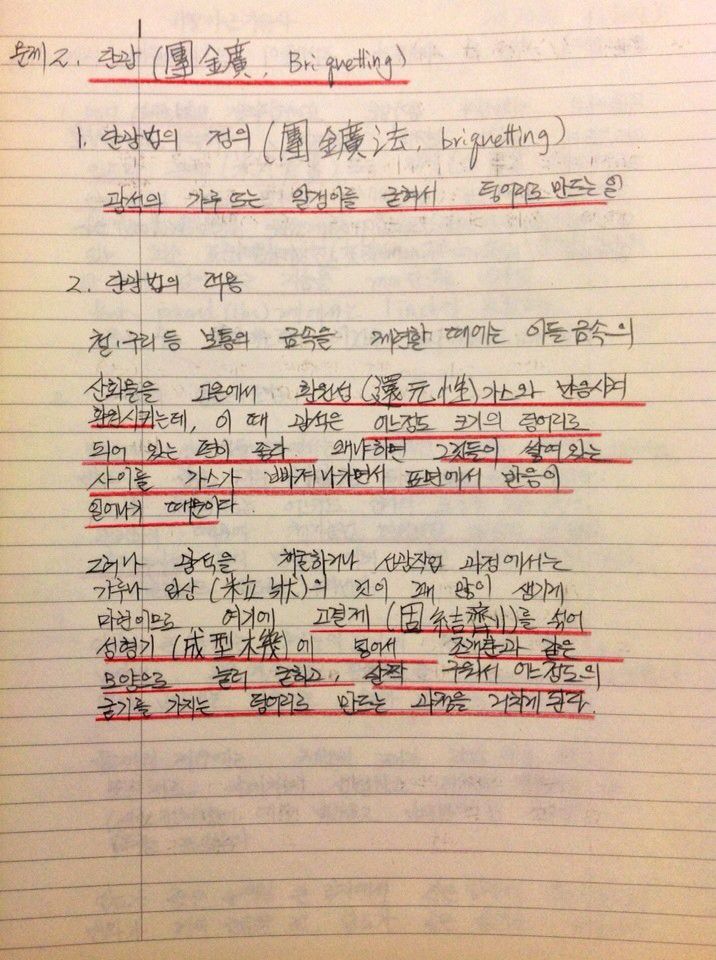 문제 2. 단광 (團鑛, Briquetting)
1. 단광법의 정의 (團鑛法, briquetting)
광석의 가루 또는 알갱이를 굳혀서 덩어리로 만드는 일
2. 단광법의 적용
철·구리 등 보통의 금속을 제련할 때에는 이들 금속의
산화물을 고온에서 환원성 (還元性) 가스와 반응시켜
환원시키는데, 이 때 광석은 어느정도 크기의 덩어리로
되어 있는 편이 좋다. 왜냐하면 그것들이 쌓여 있는
사이를 가스가 빠져나가면서 표면에서 반응이
일어나기 때문이다.
그러나 광석을 채굴하거나 선광작업 과정에서는
가루나 입상 (粒狀)의 것이 꽤 많이 생기게
마련이므로 여기에 고결제 (固結劑)를 섞어
성형기 (成型機)에 넣어서 조개탄과 같은
모양으로 눌러 굳히고, 살짝 구워서 어느정도의
굳기를 가지는 덩어리로 만드는 과정을 거치게 된다.